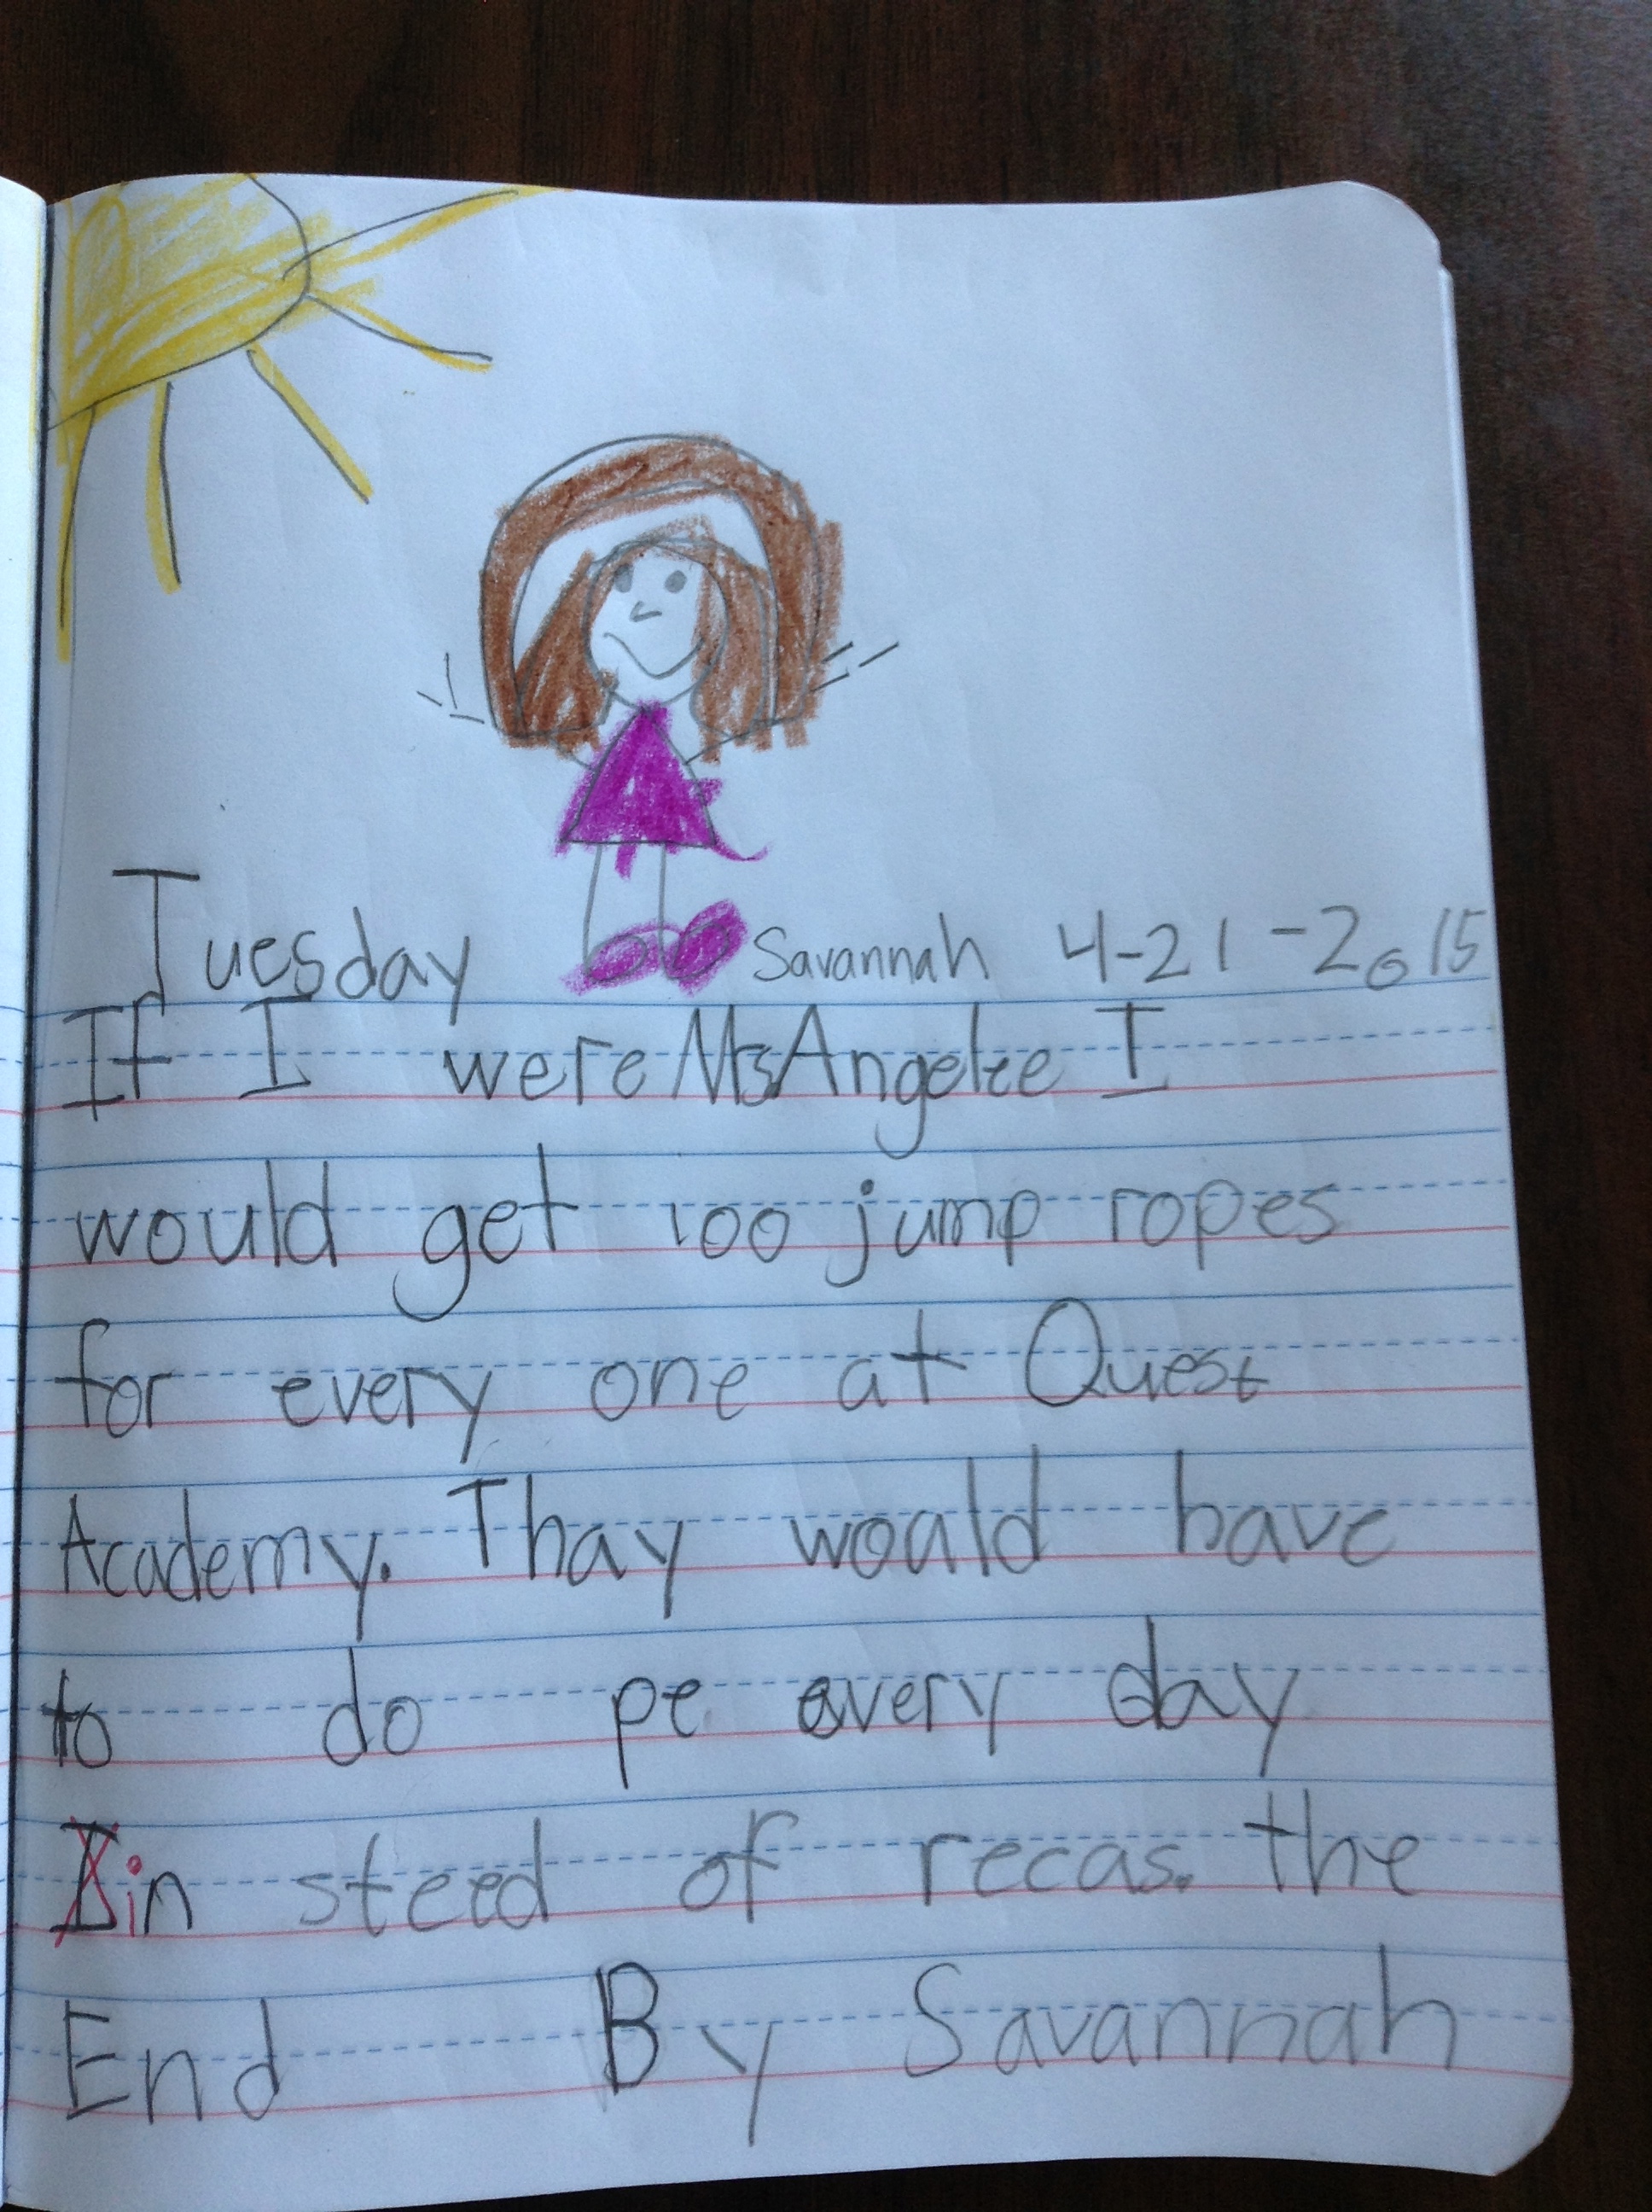 Tuesday Savannah 4-21-2015
If I were Ms Angelee I
would get 100 jump ropes
for every one at Quest
Academy. Thay would have
to do pe every day
in steed of recas. the
End By Savannah